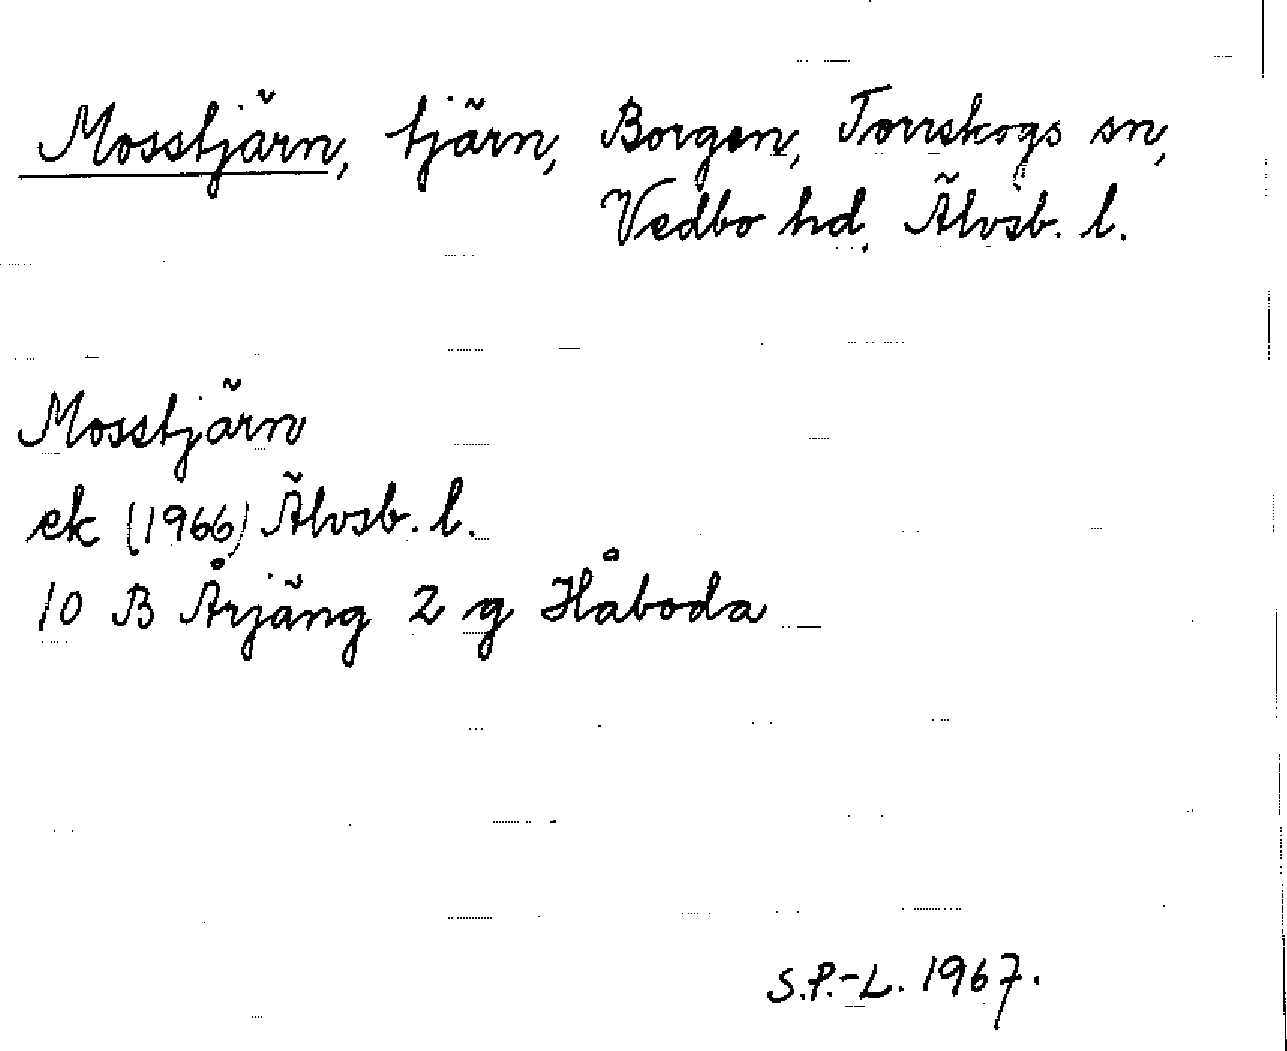 Mosstjärn, tjärn, Borgen, Torrskogs sn,
Vedbo hd, Älvsb. l.
Mosstjärn
ek (1966) Älvsb. l.
10 B Årjäng 2 g Håboda
S.P.-L. 1967.